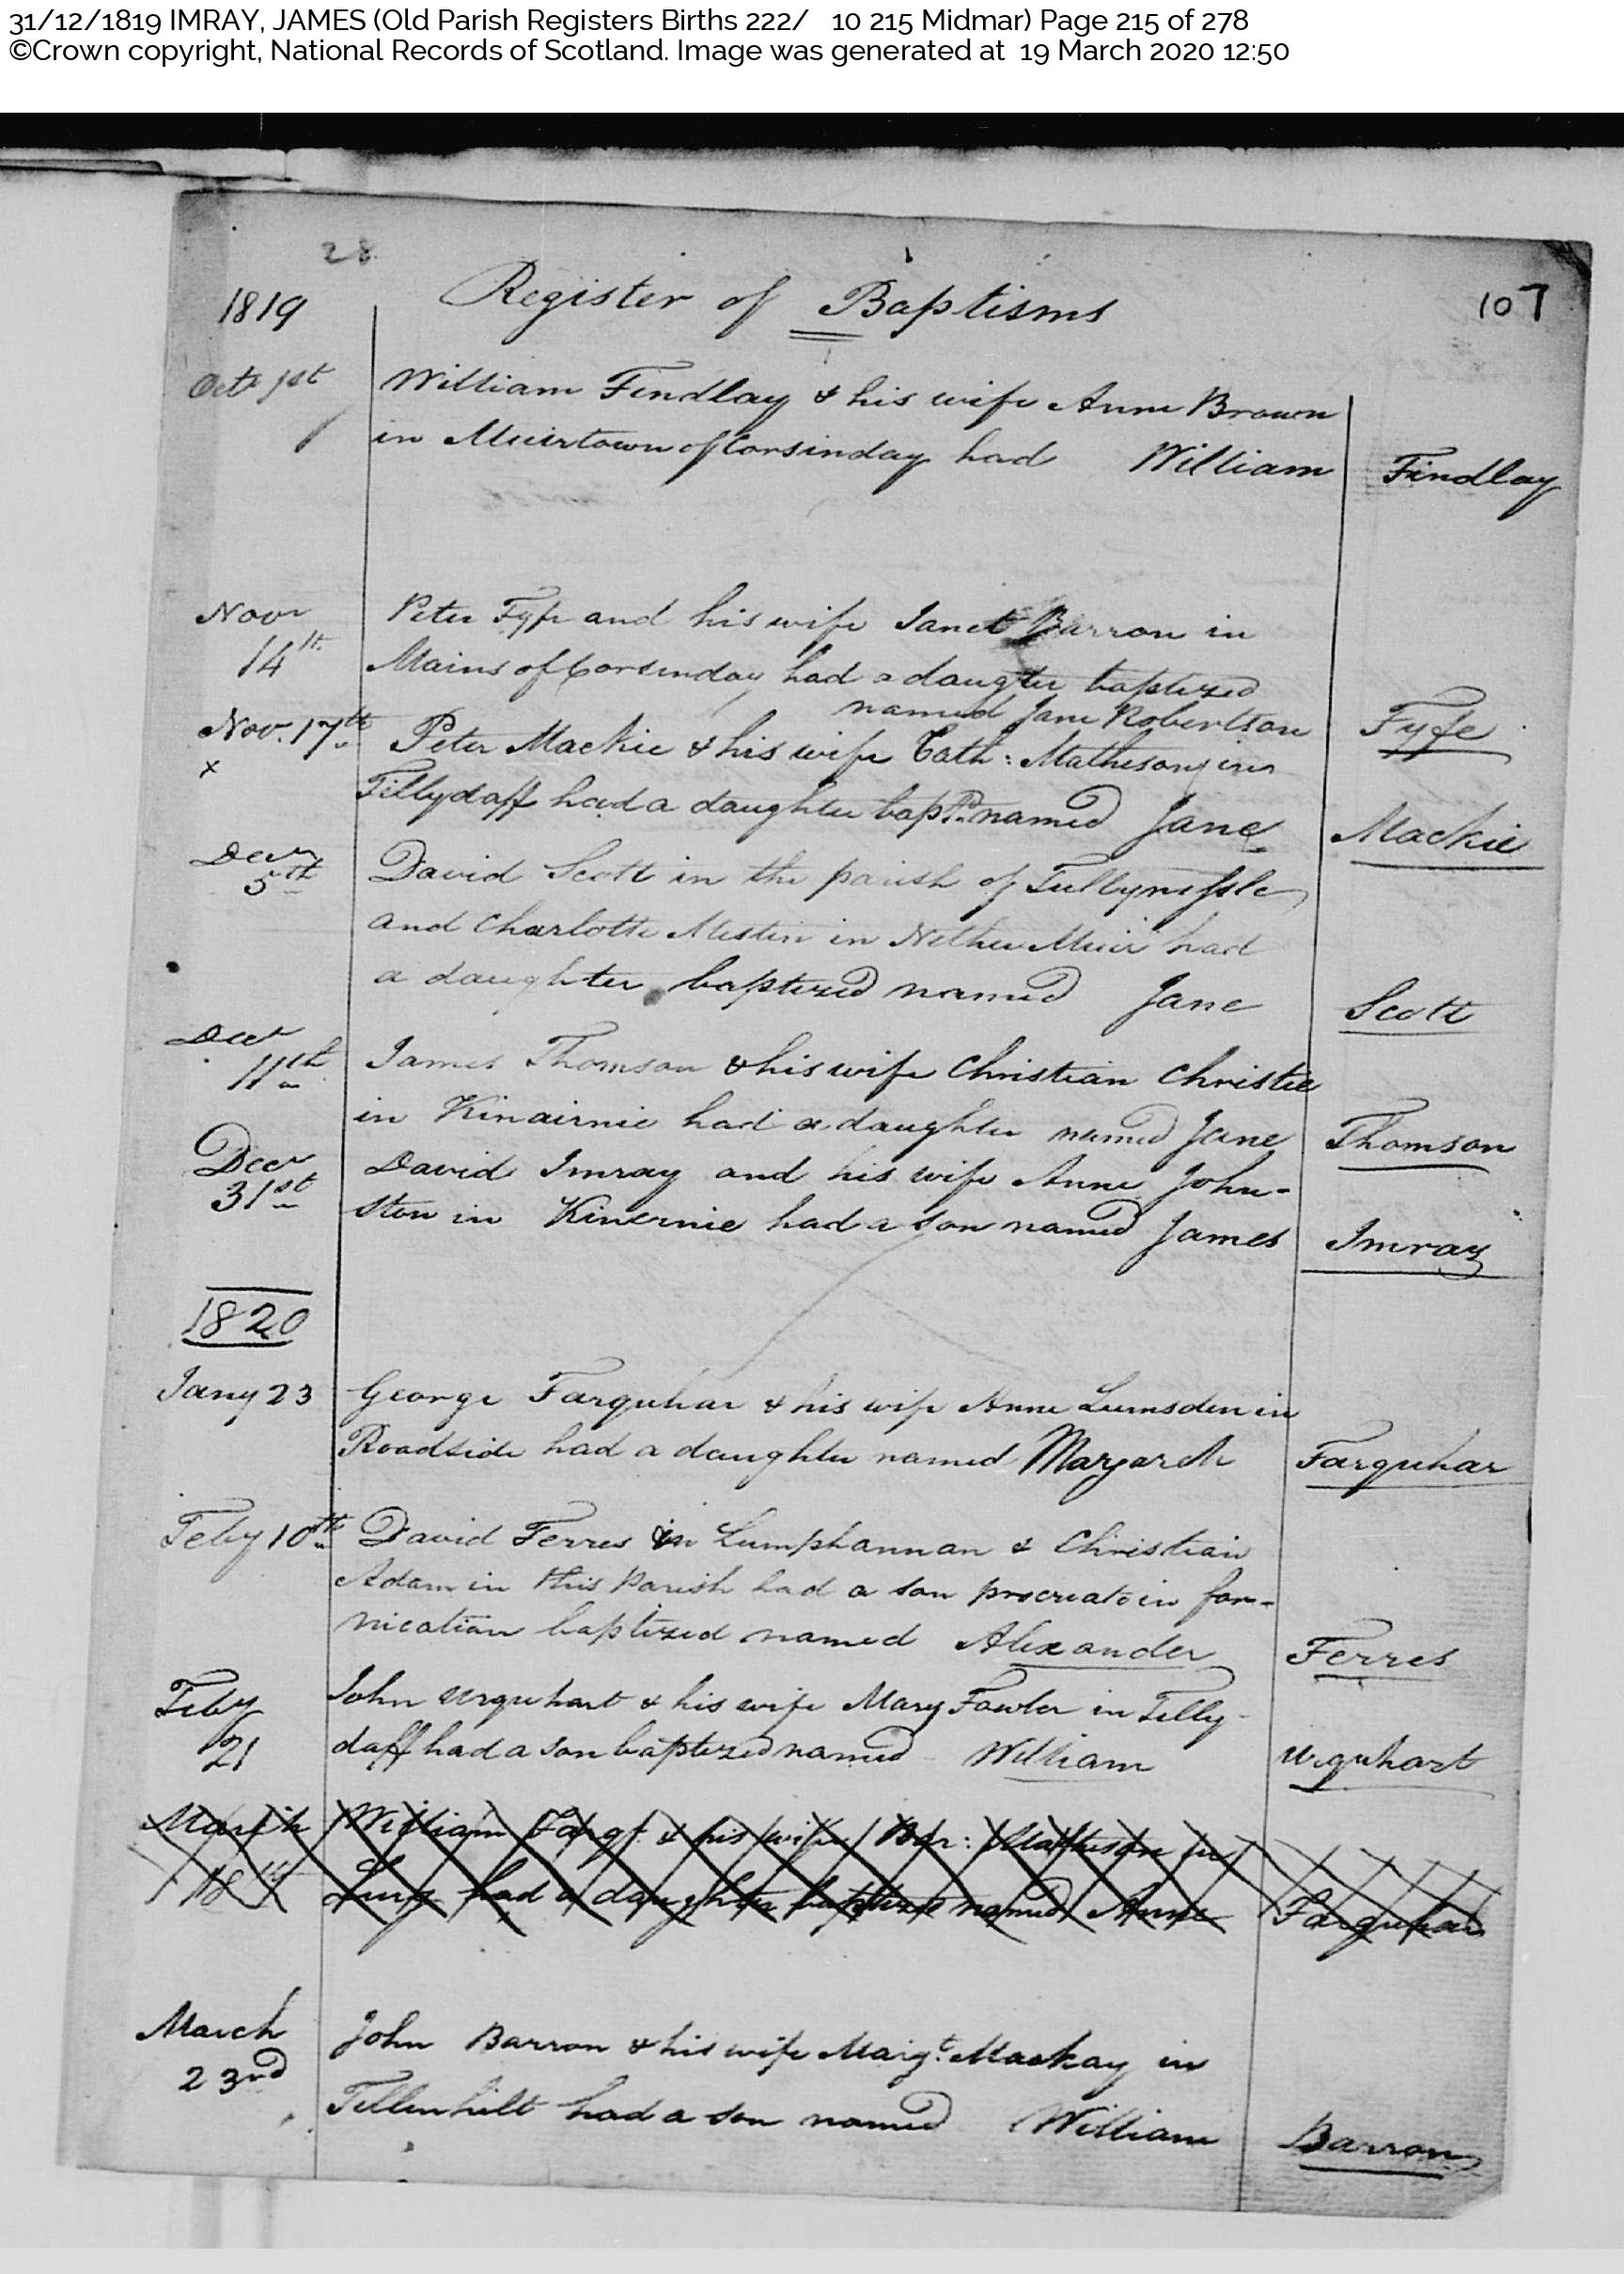 31/12/1819 IMRAY, JAMES (Old Parish Registers Births 222/ 10 215 Midmar) Page 215 of 278
©Crown copyright, National Records of Scotland. Image was generated at 19 March 2020 12:50
28
1819 Register of Baptisms 107
Octr 1st William Findlay & his wife Anne Brown
in Muirtown of Corsinday had William Findlay
Novr Peter Fyfe and his wife Janet Barron in
14th Mains of Corsinday had a daugter baptized
named Jane Robertson Fyfe
Nov. 17th Peter Mackie & his wife Cath: Mathison in
x Tillydaff had a daughter bapd. named Jane Mackie
Decr David Scott in the parish of Tullynessle
5th and Charlotte Mestin in Nether Muir had
a daughter baptized named Jane Scott
Decr James Thomson & his wife Christian Christie
11th in Kinairnie had a daughter named Jane Thomson
Decr David Imray and his wife Anne John-
31st ston in Kinernie had a son named James Imray
1820
Jany 23 George Farquhar & his wife Anne Lumsden in
Roadside had a daughter named Margaret Farquhar
Feby 10th David Ferres in Lumphannan & Christian
Adam in this Parish had a son procreate in for-
nication baptized named Alexander Ferres
Feby John Urquhart & his wife Mary Fowler in Tilly-
21 daff had a son baptized named William Urquhart
March William Farqr. & his wife Bar: Matheson in
18th Lurg had a daughter baptized named Anne Farquhar
March John Barron & his wife Margt. Mackay in
23rd Tillenhilt had a son named William Barron